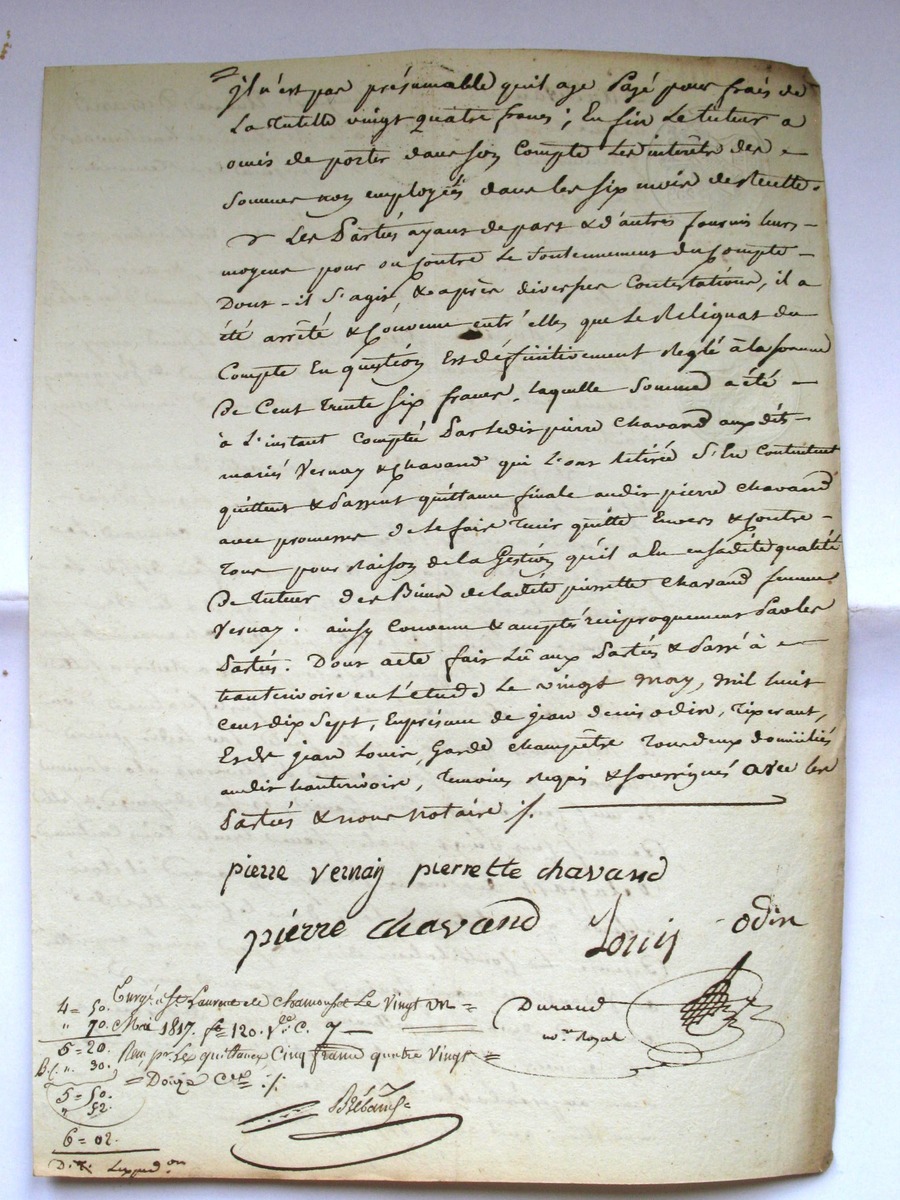 = jl n'est pas présumable qu'il aye payé pour frais de
La tutelle vingt quatre francs ; Enfin Le tuteur a
omis de porter dans son Compte Les intérêts des =
Sommes non employés dans les six mois de recette.
Les Parties ayant de part & d'autres fournis leurs -
moyens pour ou Contre Le Soutennement du Compte -
Dont - il S'agit, & après diverses Contestations, il a
été arrêté & Convenu entr'elles que Le Reliquat du
Compte En question Est définitivement Reglé à la somme
De Cent trente Six francs, laquelle Somme a été -
à L'instant Comptée Par ledit pierre Chavand aux dits -
mariés Vernay & Chavand qui L'ont Retirée S'En Contentent
quittent & Passent quittance finale audit pierre Chavand
avec promesse de le faire tenir quitte Envers & Contre -
tous pour Raison de la Gestion qu'il a Eu en sadite qualité
De tuteur des Biens de ladite pierrette Chavand femme
Vernay. ainsy Convenu & accepté réciproquement Par les
Parties. Dont acte fait Lû aux Parties & Passé à -
hauterivoire en L'étude Le vingt may, mil huit
cent dix Sept, En présence de jean denis odin, tixerant,
Et de jean Louis, Garde champêtre tous deux domiciliés
audit hauterivoire, temoins Requis & Soussignés avec les
Parties & nous notaire ./.
pierre vernay pierrette chavand
pierre chavand Louis odin
Durand
n.re Royal
Enrgé. à St. Laurent de Chamousset Le Vingt un =
Mai 1817. f.o 120. v.o C. 7
Reçu pr. Les quittances Cinq francs quatre Vingt =
= Dixième C.es ./.
4 = 50.
" 70.
5 = 20.
" 30.
5 = 50.
" 52.
6 = 02.